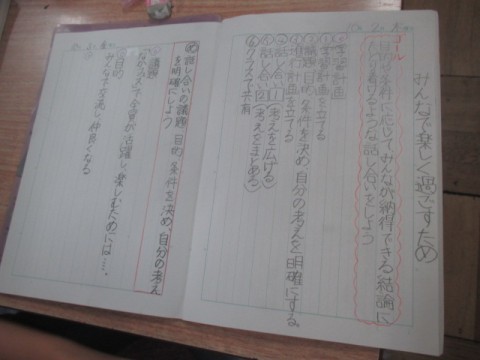 みんなで楽しく過ごすために
ゴール
目的や条件に応じてみんなが納得できる結論に
たどり着けるような話し合いをしよう
①学習計画を立てる
②議題、目的、条件を決め、自分の考えを明確にする。
③進行計画を立てる
④話し合い①(考えを広げる)
⑤話し合い②(考えをまとめる)
⑥クラスで共有
め 話し合いの議題、目的、条件を決め、自分の考え
を明確にしよう
議題
全員が活躍し楽しむためには…。
目的
みんなが楽しく仲良くなる